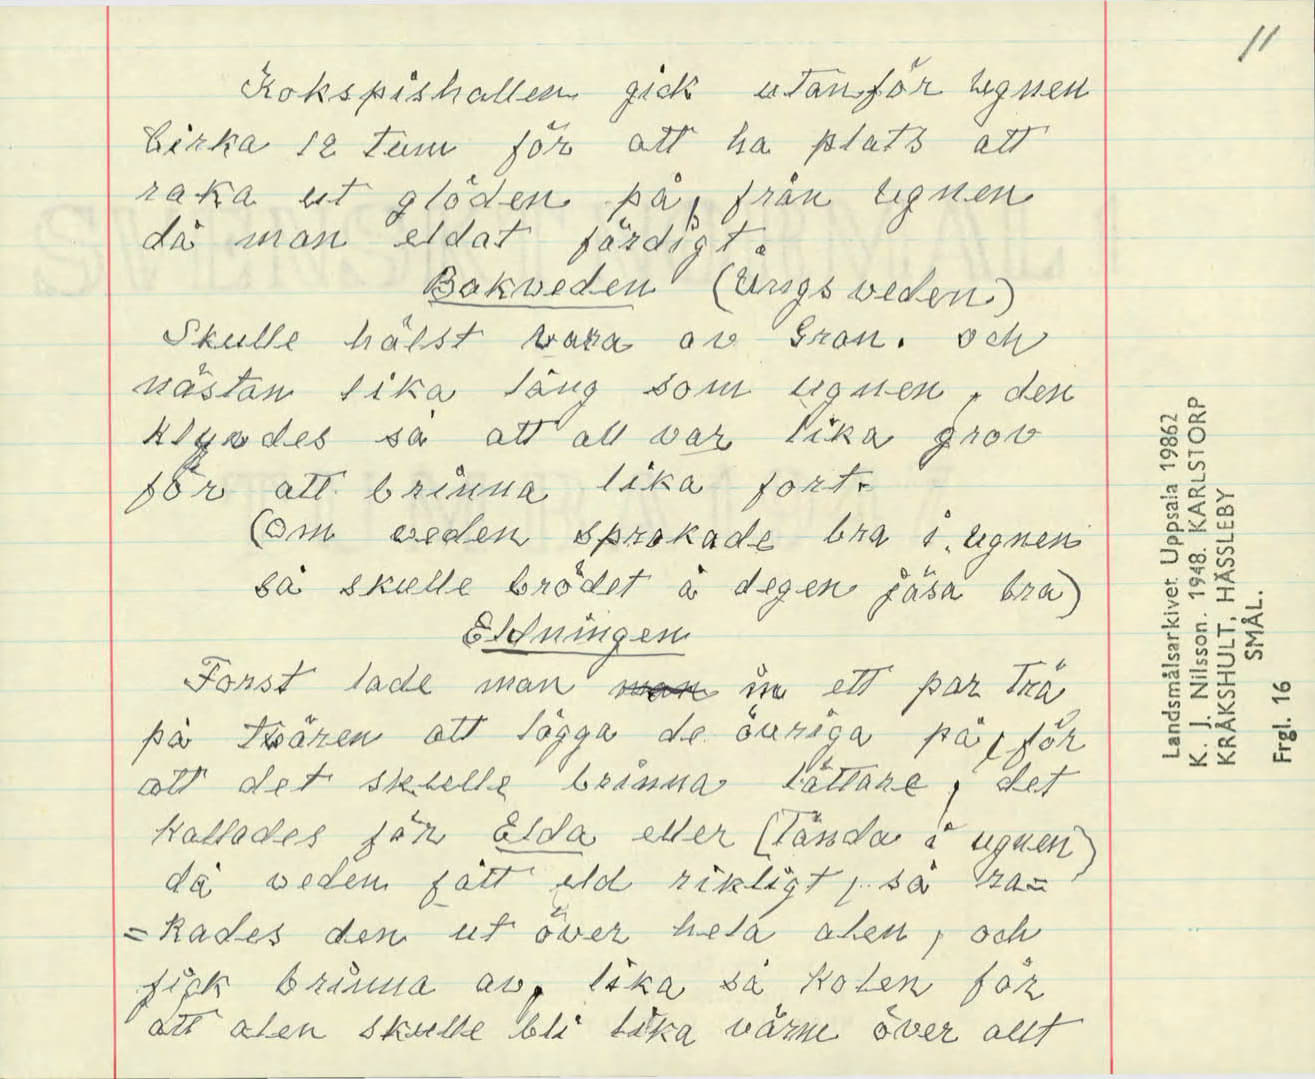 11
Kokspishallen gick utanför ugnen
Cirka 12 tum för att ha plats att
raka ut glöden på, från ugnen
då man eldat färdigt.
Bakveden (Ungsveden)
Skulle hälst vara av Gran. och
nästan lika lång som ugnen, den
klyvdes så att all var lika grov
för att brinna lika fort.
(om veden sprakade bra i ugnen
så skulle brödet å degen jäsa bra)
Eldningen
Forst lade man man in ett par Trä
på tvären att lägga de övriga på, för
att det skulle brinna lättare, det
kallades för Elda eller (Tända i ugnen)
då veden fått eld rikligt, så ra=
=kades den ut över hela alen, och
fick brinna av, lika så kolen för
att alen skulle bli lika värm över allt
Landsmålsarkivet Uppsala 19862
K. J. Nilsson. 1948. KARLSTORP
KRÅKSHULT, HÄSSLEBY
SMÅL.
Frgl. 16